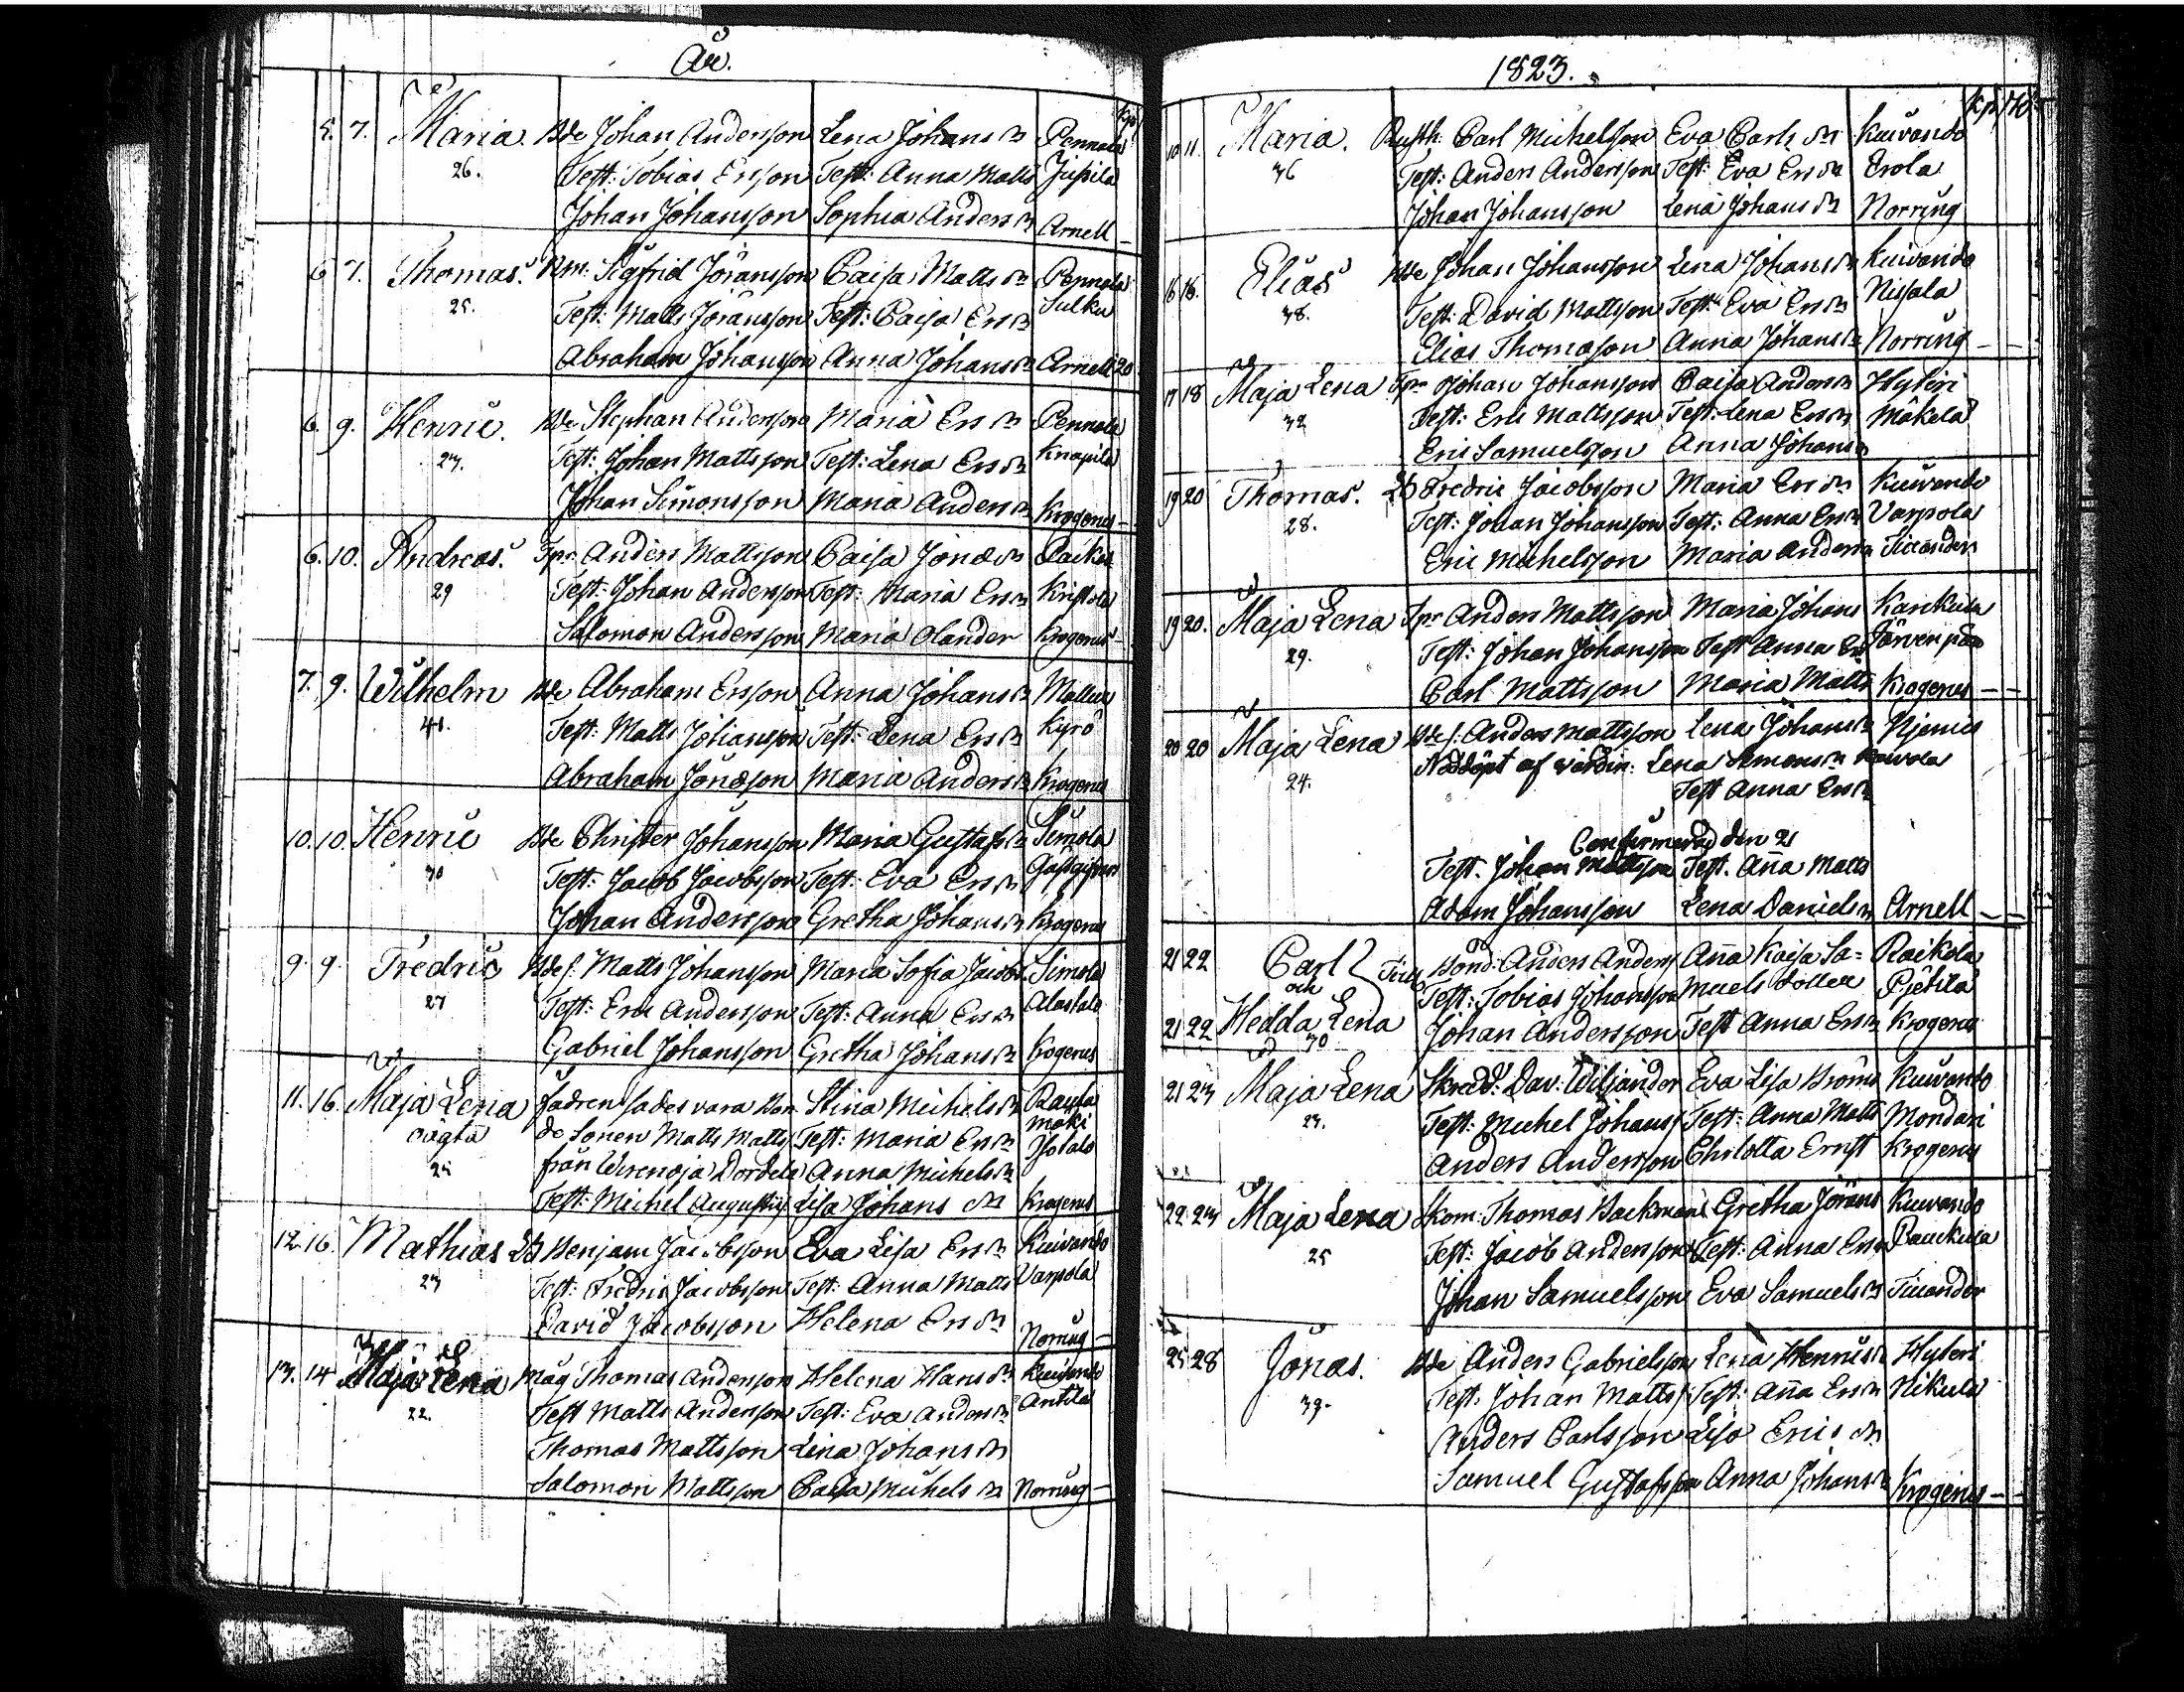 År.
5. 7. Maria. Bde Johan Andersson Lena Johans dr Pennala
26. Test: Tobias Ersson Test: Anna Matts
Johan Johansson Sophia Anders dr Arnell
6 7. Thomas. Sigfrid Jöransson Caisa Matts dr Pennala
25. Test: Matts Jöransson Test: Caisa Ers dr Sulku
Abraham Johansson Anna Johans dr Arnell 20
6. 9. Henric. Bde Stephan Andersson Maria Ers dr Pennala
27. Test: Johan Mattsson Test: Lena Ers dr Knapila
Johan Simonsson Maria Anders dr Krogerus
6. 10. Andreas. Tpr Anders Mattsson Caisa Jonæ dr
29 Test: Johan Andersson Test: Maria Ers dr Kristola
Salomon Andersson Maria Olander Krogerus
7. 9. Wilhelm Bde Abraham Ersson Anna Johans dr
41. Test: Matts Johansson Test: Lena Ers dr Kyrö
Abraham Jonæson Maria Anders dr Krogerus
10. 10. Henric Bde Christer Johansson Maria Gustafs dr Simola
30 Test: Jacob Jacobsson Test: Eva Ers dr
Johan Andersson Gretha Johans dr Krogerus
9. 9. Fredric Bdes: Matts Johansson Maria Sofia Jacobs Simola
27 Test: Eric Andersson Test: Anna Ers dr Alastalo
Gabriel Johansson Gretha Johans dr Krogerus
11. 16. Maja Lena fadren sades vara Bon Stina Michels dr Rauta
oägta de Sonen Matts Matts Test: Maria Ers dr mäki
25 från Wirenoja Anna Michels dr Isotalo
Test: Michel Lisa Johans dr Krogerus
12. 16. Mathias Benjam Jacobsson Eva Lisa Ers dr Kuivando
23 Test: Fredric Jacobsson Test: Anna Matts Varpola
David Jacobsson Helena Ers dr Norring
13. 14 Maja Lena Måg Thomas Andersson Helena Hans dr Kuivando
22. Test Matts Andersson Test: Eva Anders dr Antila
Thomas Mattsson Lena Johans dr
Salomon Mattsson Caisa Michels dr Norring
1823.
10 11. Maria. Rusth. Carl Michelsson Eva Carls dr Kuivando
36 Test: Anders Andersson Test: Eva Ers dr Erola
Johan Johansson Lena Johans dr Norring
16 18. Elias Bde Johan Johansson Lena Johans dr Kuivando
38. Test: David Mattsson Test: Eva Ers dr Nissola
Elias Thomasson Anna Johans dr Norring
17 18 Maja Lena Tpr Johan Johansson Caisa Anders dr Hyteri
32 Test: Eric Mattsson Test: Lena Ers dr Mäkelä
Eric Samuelsson Anna Johans dr
19 20 Thomas. Fredric Jacobsson Maria Ers dr Kuivando
28. Test: Johan Johansson Test: Anna Ers dr Varpola
Eric Michelsson Maria Anders dr Ticcander
19 20. Maja Lena Tpr Anders Mattsson Maria Johans Karikula
29. Test: Johan Johansson Test Anna Ers Järvenpää
Carl Mattsson Maria Matts Krogerus
20 20 Maja Lena Bdes: Anders Mattsson Lena Johans dr
24. Nöddöpt af värdin: Lena Simons dr
Test Anna Ers dr
Confirmerad den 21
Test. Johan Mattsson Test. Aña Matts
Adam Johansson Lena Daniels dr Arnell
21 22 Carl Bond: Anders Anders Aña Kaisa Sa= Raikola
och Test: Tobias Johansson muels dotter
21 22 Hedda Lena Johan Andersson Test Anna Ers dr Krogerus
30
21 23 Maja Lena Skredd. Dav: Wiljander Eva Lisa Kuivando
23. Test: Michel Johans Test: Anna Matts Mondari
Anders Andersson Chrlotta Ernst Krogerus
22. 23 Maja Lena Skom: Thomas Backman Gretha Jörans Kuivando
25 Test: Jacob Andersson Test: Anna Ers dr
Johan Samuelsson Eva Samuels dr Ticcander
25 28 Jonas. Bde Anders Gabrielsson Lena Henrics dr Hyteri
39. Test. Johan Matts Test: Aña Ers dr Nikula
Anders Carlsson Lisa Erics dr
Samuel Gustafsson Anna Johans dr Krogerus